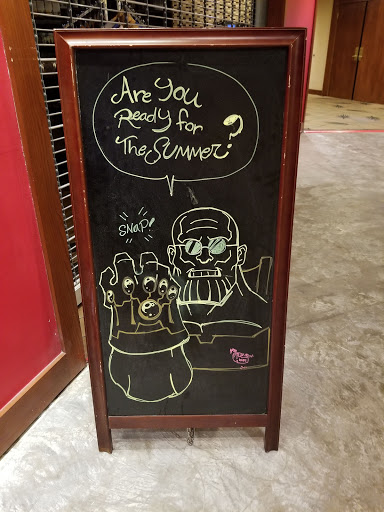 Are You
Ready for
The SUMMER?
SNAP!